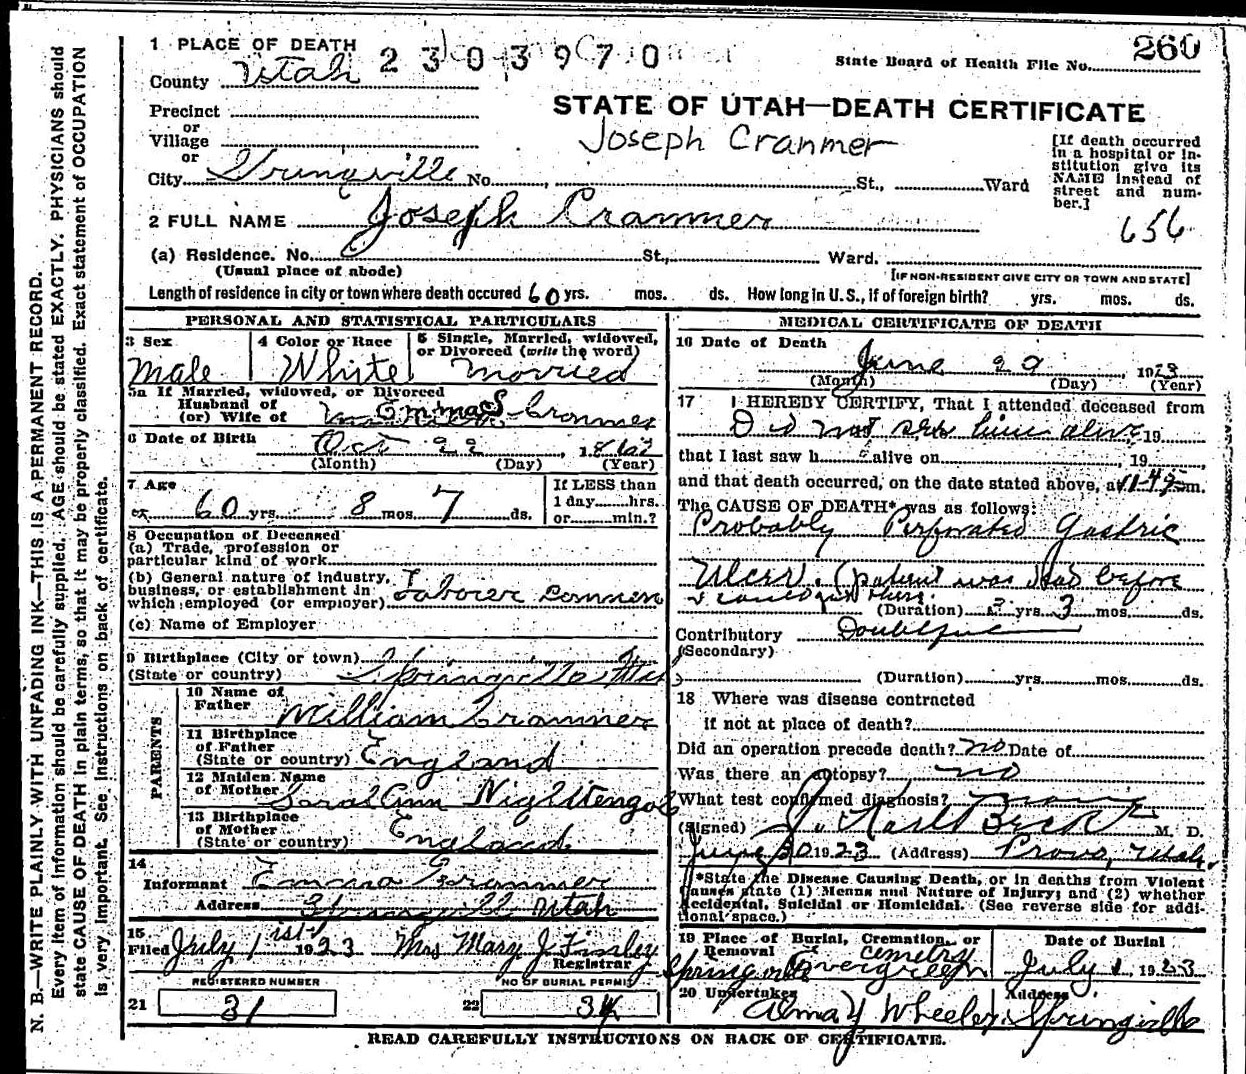 1 PLACE OF DEATH
2303970
State Board of Health File No. 260
County Utah
Precinct
or
Village
or
STATE OF UTAH—DEATH CERTIFICATE
Joseph Cranmer
City Springville No. , St., Ward
[If death occurred
in a hospital or in-
stitution give its
NAME instead of
street and num-
ber.]
656
2 FULL NAME Joseph Cranmer
(a) Residence. No. St., Ward.
(Usual place of abode)
[IF NON-RESIDENT GIVE CITY OR TOWN AND STATE]
Length of residence in city or town where death occured 60 yrs. mos. ds. How long in U.S., if of foreign birth? yrs. mos. ds.
PERSONAL AND STATISTICAL PARTICULARS
3 Sex
Male
4 Color or Race
White
5 Single, Married, widowed,
or Divorced (write the word)
Married
5a If Married, widowed, or Divorced
Husband of
(or) Wife of Emma Cranmer
6 Date of Birth Oct 22, 1862
(Month) (Day) (Year)
7 Age
60 yrs. 8 mos 7 ds.
If LESS than
1 day hrs.
or min.?
8 Occupation of Deceased
(a) Trade, profession or
particular kind of work
(b) General nature of industry,
business, or establishment in
which employed (or employer) Laborer common
(c) Name of Employer
9 Birthplace (City or town)
(State or country) Springville Utah
PARENTS
10 Name of
Father William Cranmer
11 Birthplace
of Father
(State or country) England
12 Maiden Name
of Mother Sarah Ann Nightengal
13 Birthplace
of Mother
(State or country) England
14
Informant Emma Cranmer
Address Springville Utah
15
Filed July 1st 1923 Mrs Mary J Finsley
Registrar
REGISTERED NUMBER
21 31
NO OF BURIAL PERMIT
22 34
MEDICAL CERTIFICATE OF DEATH
16 Date of Death
June 29, 1923
(Month) (Day) (Year)
17 I HEREBY CERTIFY, That I attended deceased from
Did not see him alive 19
that I last saw h alive on , 19
and that death occurred, on the date stated above, at 11-45 m.
The CAUSE OF DEATH* was as follows:
Probably Perforated Gastric
Ulcer. (patient was dead before
(Duration) ? yrs. 3 mos. ds.
Contributory
(Secondary)
(Duration) yrs. mos. ds.
18 Where was disease contracted
if not at place of death?
Did an operation precede death? no Date of
Was there an autopsy? no
What test confirmed diagnosis?
(Signed) J. Karl Beck M. D.
June 30 1923 (Address) Provo, Utah.
*State the Disease Causing Death, or in deaths from Violent
Causes state (1) Means and Nature of Injury; and (2) whether
Accidental, Suicidal or Homicidal. (See reverse side for addi-
tional space.)
19 Place of Burial, Cremation, or
Removal
Springville Evergreen cemetry
Date of Burial
July 1, 1923
20 Undertaker Address
Alma Y Wheeler Springville
READ CAREFULLY INSTRUCTIONS ON BACK OF CERTIFICATE.
N. B.—WRITE PLAINLY WITH UNFADING INK—THIS IS A PERMANENT RECORD.
Every item of information should be carefully supplied. AGE should be stated EXACTLY. PHYSICIANS should
state CAUSE OF DEATH in plain terms, so that it may be properly classified. Exact statement of OCCUPATION
is very important. See instructions on back of certificate.